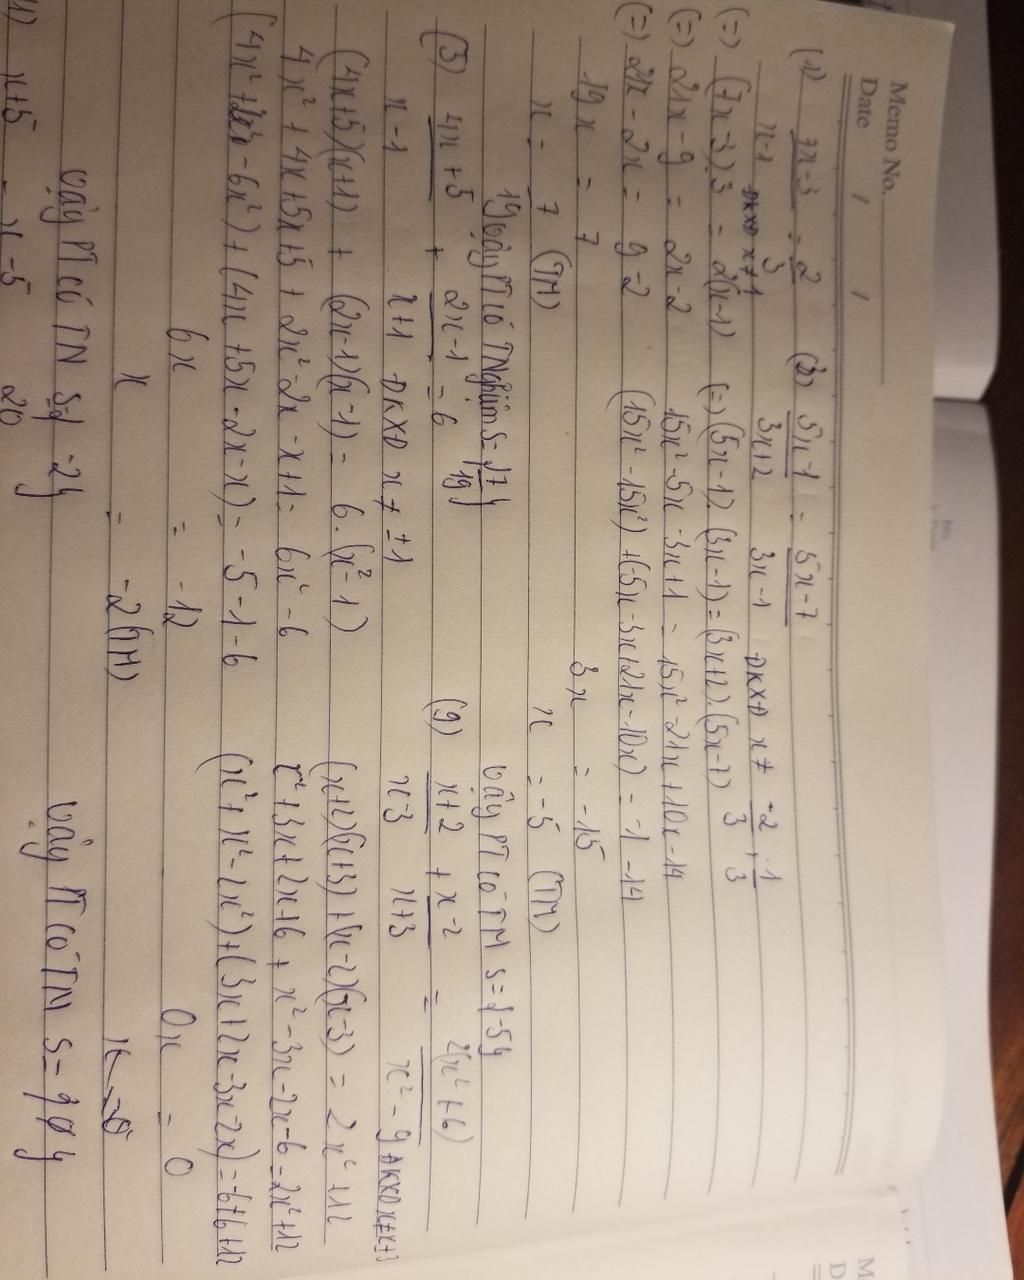 Memo No.
Date / /
(1) 7x-3 = 2
x-1 3
ĐKXĐ x≠1
(=) (7x-3).3 = 2(x-1)
(=) 21x-9 = 2x-2
(=) 21x-2x = 9-2
19x = 7
x = 7 (TM)
19
Vậy PT có TNghiệm S={7/19}
(2) 5x-1 = 5x-7
3x+2 3x-1 ĐKXĐ x≠ -2/3, 1/3
(=) (5x-1).(3x-1)=(3x+2).(5x-7)
15x²-5x-3x+1 = 15x²-21x+10x-14
(15x²-15x²)+(-5x-3x+21x-10x) = -1-14
3x = -15
x = -5 (TM)
Vậy PT có TM S={-5}
(3) 4x+5 + 2x-1 = 6
x-1 x+1 ĐKXĐ x≠±1
(4x+5)(x+1) + (2x-1)(x-1) = 6.(x²-1)
4x²+4x+5x+5+2x²-2x-x+1= 6x²-6
(4x²+2x²-6x²)+(4x+5x-2x-x)=-5-1-6
6x = -12
x = -2(TM)
Vậy PT có TN S={-2}
(9) x+2 + x-2 = 2(x²+6)
x-3 x+3 x²-9 ĐKXĐ x≠±3
(x+2)(x+3)+(x-2)(x-3) = 2x²+12
x²+3x+2x+6+x²-3x-2x-6=2x²+12
(x²+x²-2x²)+(3x+2x-3x-2x)=-6+6+12
0x = 0
Vậy PT có TN S={0}
x+5 - x-5 20